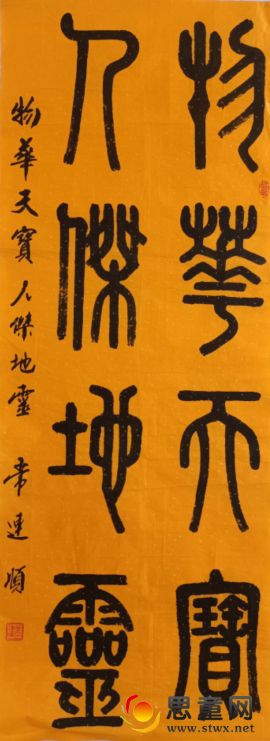 物華天寶
人傑地靈
物華天寶人傑地靈 常連順
思童网
www.stwx.net